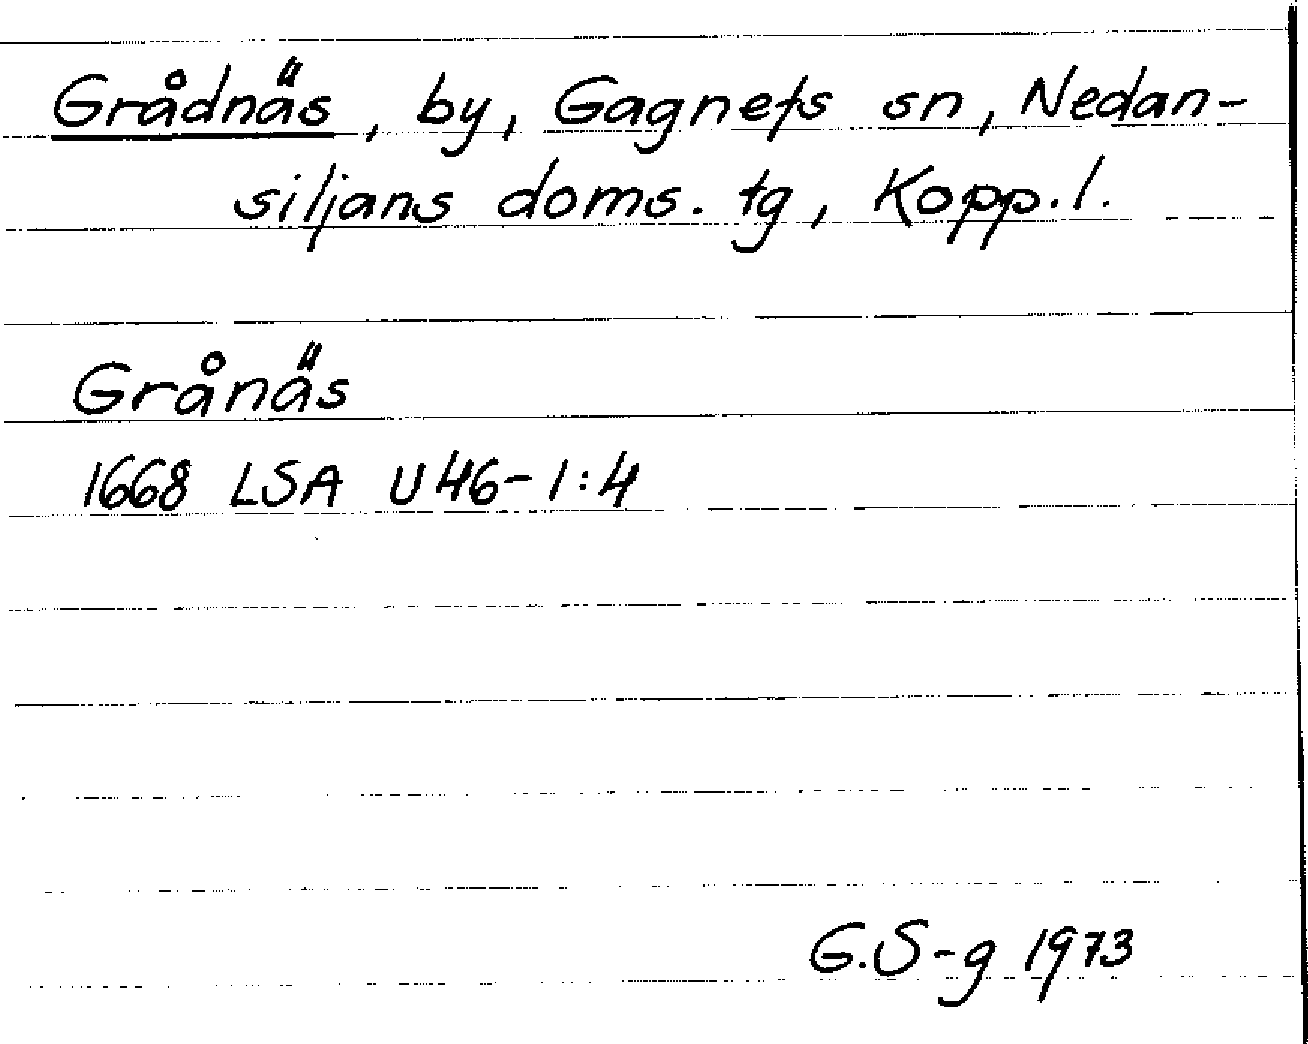 Grådnäs, by, Gagnefs sn, Nedan-
siljans doms. tg, Kopp. l.
Grånäs
1668 LSA U46-1:4
G.S-g 1973